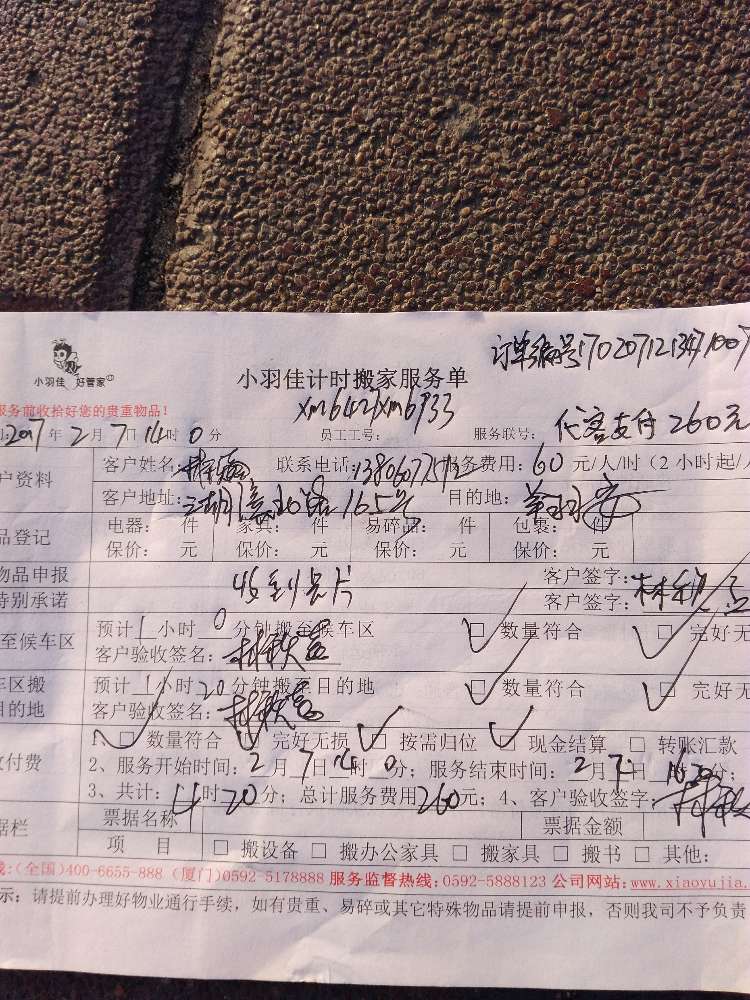 订单编号1702071213471007
小羽佳 好管家
小羽佳计时搬家服务单
服务前收拾好您的贵重物品！
xm6427xm6933
2017年2月7日14时0分 员工工号： 服务联号： 代客支付260元
户资料 客户姓名： 联系电话： 服务费用：60元/人/时（2小时起/
客户地址： 165号 目的地：
品登记 电器： 件 家具： 件 易碎品： 件 包裹： 件
保价： 元 保价： 元 保价： 元 保价： 元
物品申报 客户签字：
特别承诺 客户签字：
至候车区 预计1小时0分钟搬至候车区 □ 数量符合 □ 完好无
客户验收签名：
车区搬 预计1小时20分钟搬至目的地 □ 数量符合 □ 完好无
目的地 客户验收签名：
付费 1、□ 数量符合 □ 完好无损 □ 按需归位 □ 现金结算 □ 转账汇款
2、服务开始时间：2月7日14时0分；服务结束时间：2月7日16时20分；
3、共计：4时20分；总计服务费用260元；4、客户验收签字：
据栏 票据名称 票据金额
项 目 □ 搬设备 □ 搬办公家具 □ 搬家具 □ 搬书 □ 其他：
线：(全国)400-6655-888 (厦门)0592-5178888 服务监督热线：0592-5888123 公司网站：www.xiaoyujia.
示：请提前办理好物业通行手续，如有贵重、易碎或其它特殊物品请提前申报，否则我司不予负责